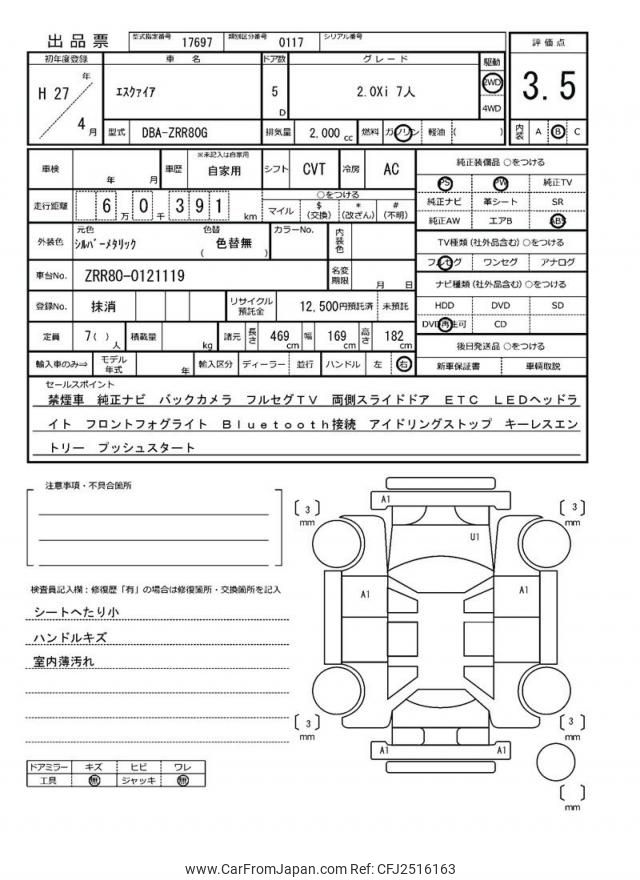 出品票
型式指定番号 17697 類別区分番号 0117 シリアル番号
評価点
3.5
内装 A B C
初年度登録 車名 ドア数 グレード 駆動
H 27 年 4 月
エスクァイア 5 D 2.0Xi 7人 2WD
4WD
型式 DBA-ZRR80G 排気量 2,000 cc 燃料 ガソリン 軽油 ( )
車検 年 月 車歴 ※未記入は自家用 自家用 シフト CVT 冷房 AC
走行距離 6 万 0 千 3 9 1 km
○をつける
マイル $(交換) *(改ざん) #(不明)
外装色 元色 シルバーメタリック 色替 ( 色替無 ) カラーNo. 内装色
車台No. ZRR80-0121119 名変期限 月 日
登録No. 抹消 リサイクル預託金 12,500円預託済 未預託
定員 7( )人 積載量 kg 諸元 長さ 469 cm 幅 169 cm 高さ 182 cm
輸入車のみ⇨ モデル年式 年 輸入区分 ディーラー 並行 ハンドル 左 右
純正装備品 ○をつける
PS PW 純正TV
純正ナビ 革シート SR
純正AW エアB ABS
TV種類(社外品含む)○をつける
フルセグ ワンセグ アナログ
ナビ種類(社外品含む)○をつける
HDD DVD SD
DVD再生可 CD
後日発送品 ○をつける
新車保証書 車輌取説
セールスポイント
禁煙車 純正ナビ バックカメラ フルセグTV 両側スライドドア ETC LEDヘッドラ
イト フロントフォグライト Bluetooth接続 アイドリングストップ キーレスエン
トリー プッシュスタート
注意事項・不具合箇所
検査員記入欄:修復歴「有」の場合は修復箇所・交換箇所を記入
シートへたり小
ハンドルキズ
室内薄汚れ
ドアミラー キズ ヒビ ワレ
工具 無 ジャッキ 無
A1
[ 3 ] mm
[ 3 ] mm
U1
A1
A1
[ 3 ] mm
[ 3 ] mm
A1
A1
[ ] mm
www.CarFromJapan.com Ref: CFJ2516163